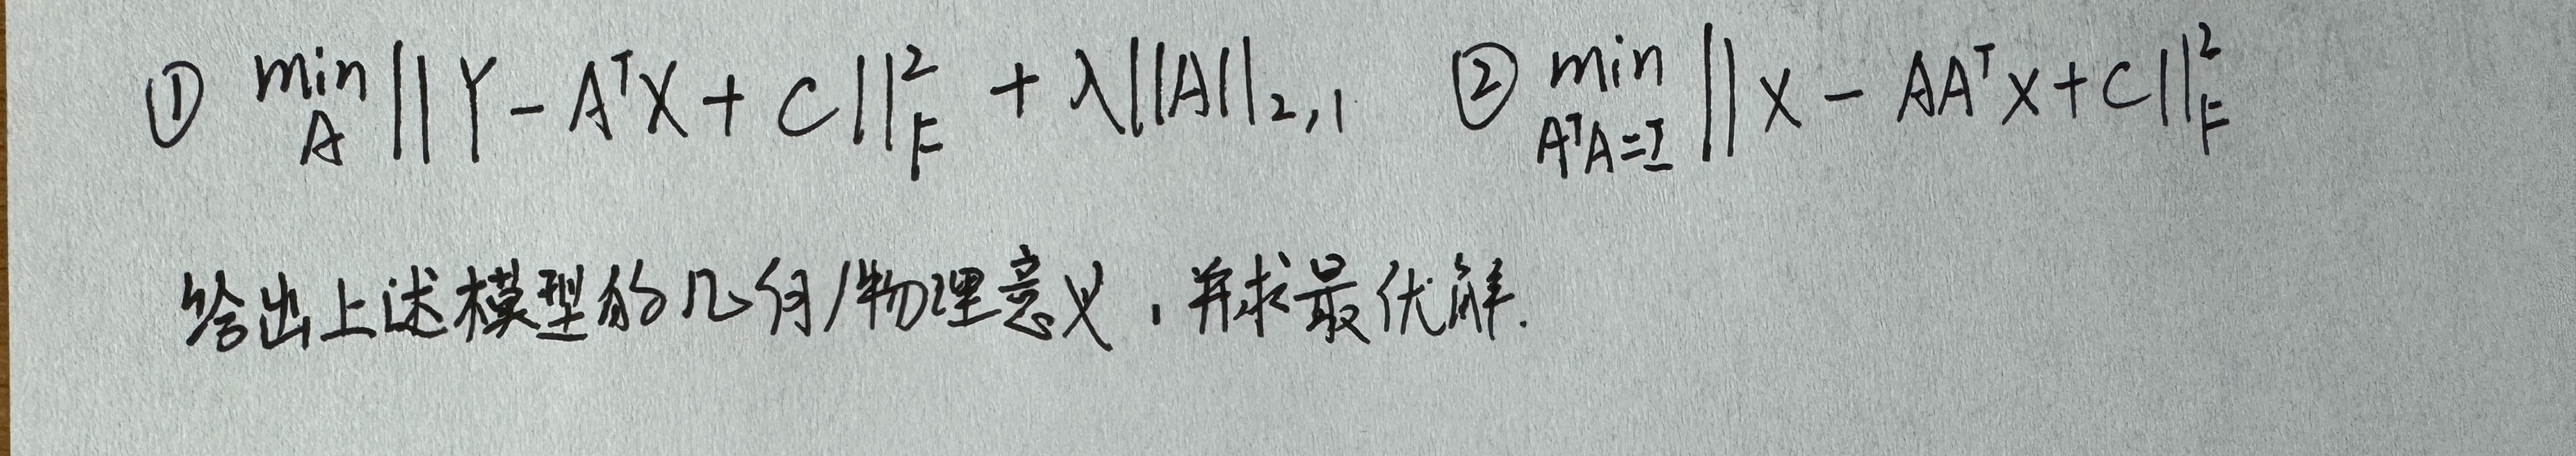 ① min_A ||Y - AᵀX + C||²_F + λ||A||₂,₁ ② min_{AᵀA=I} ||X - AAᵀX + C||²_F
给出上述模型的几何/物理意义，并求最优解.